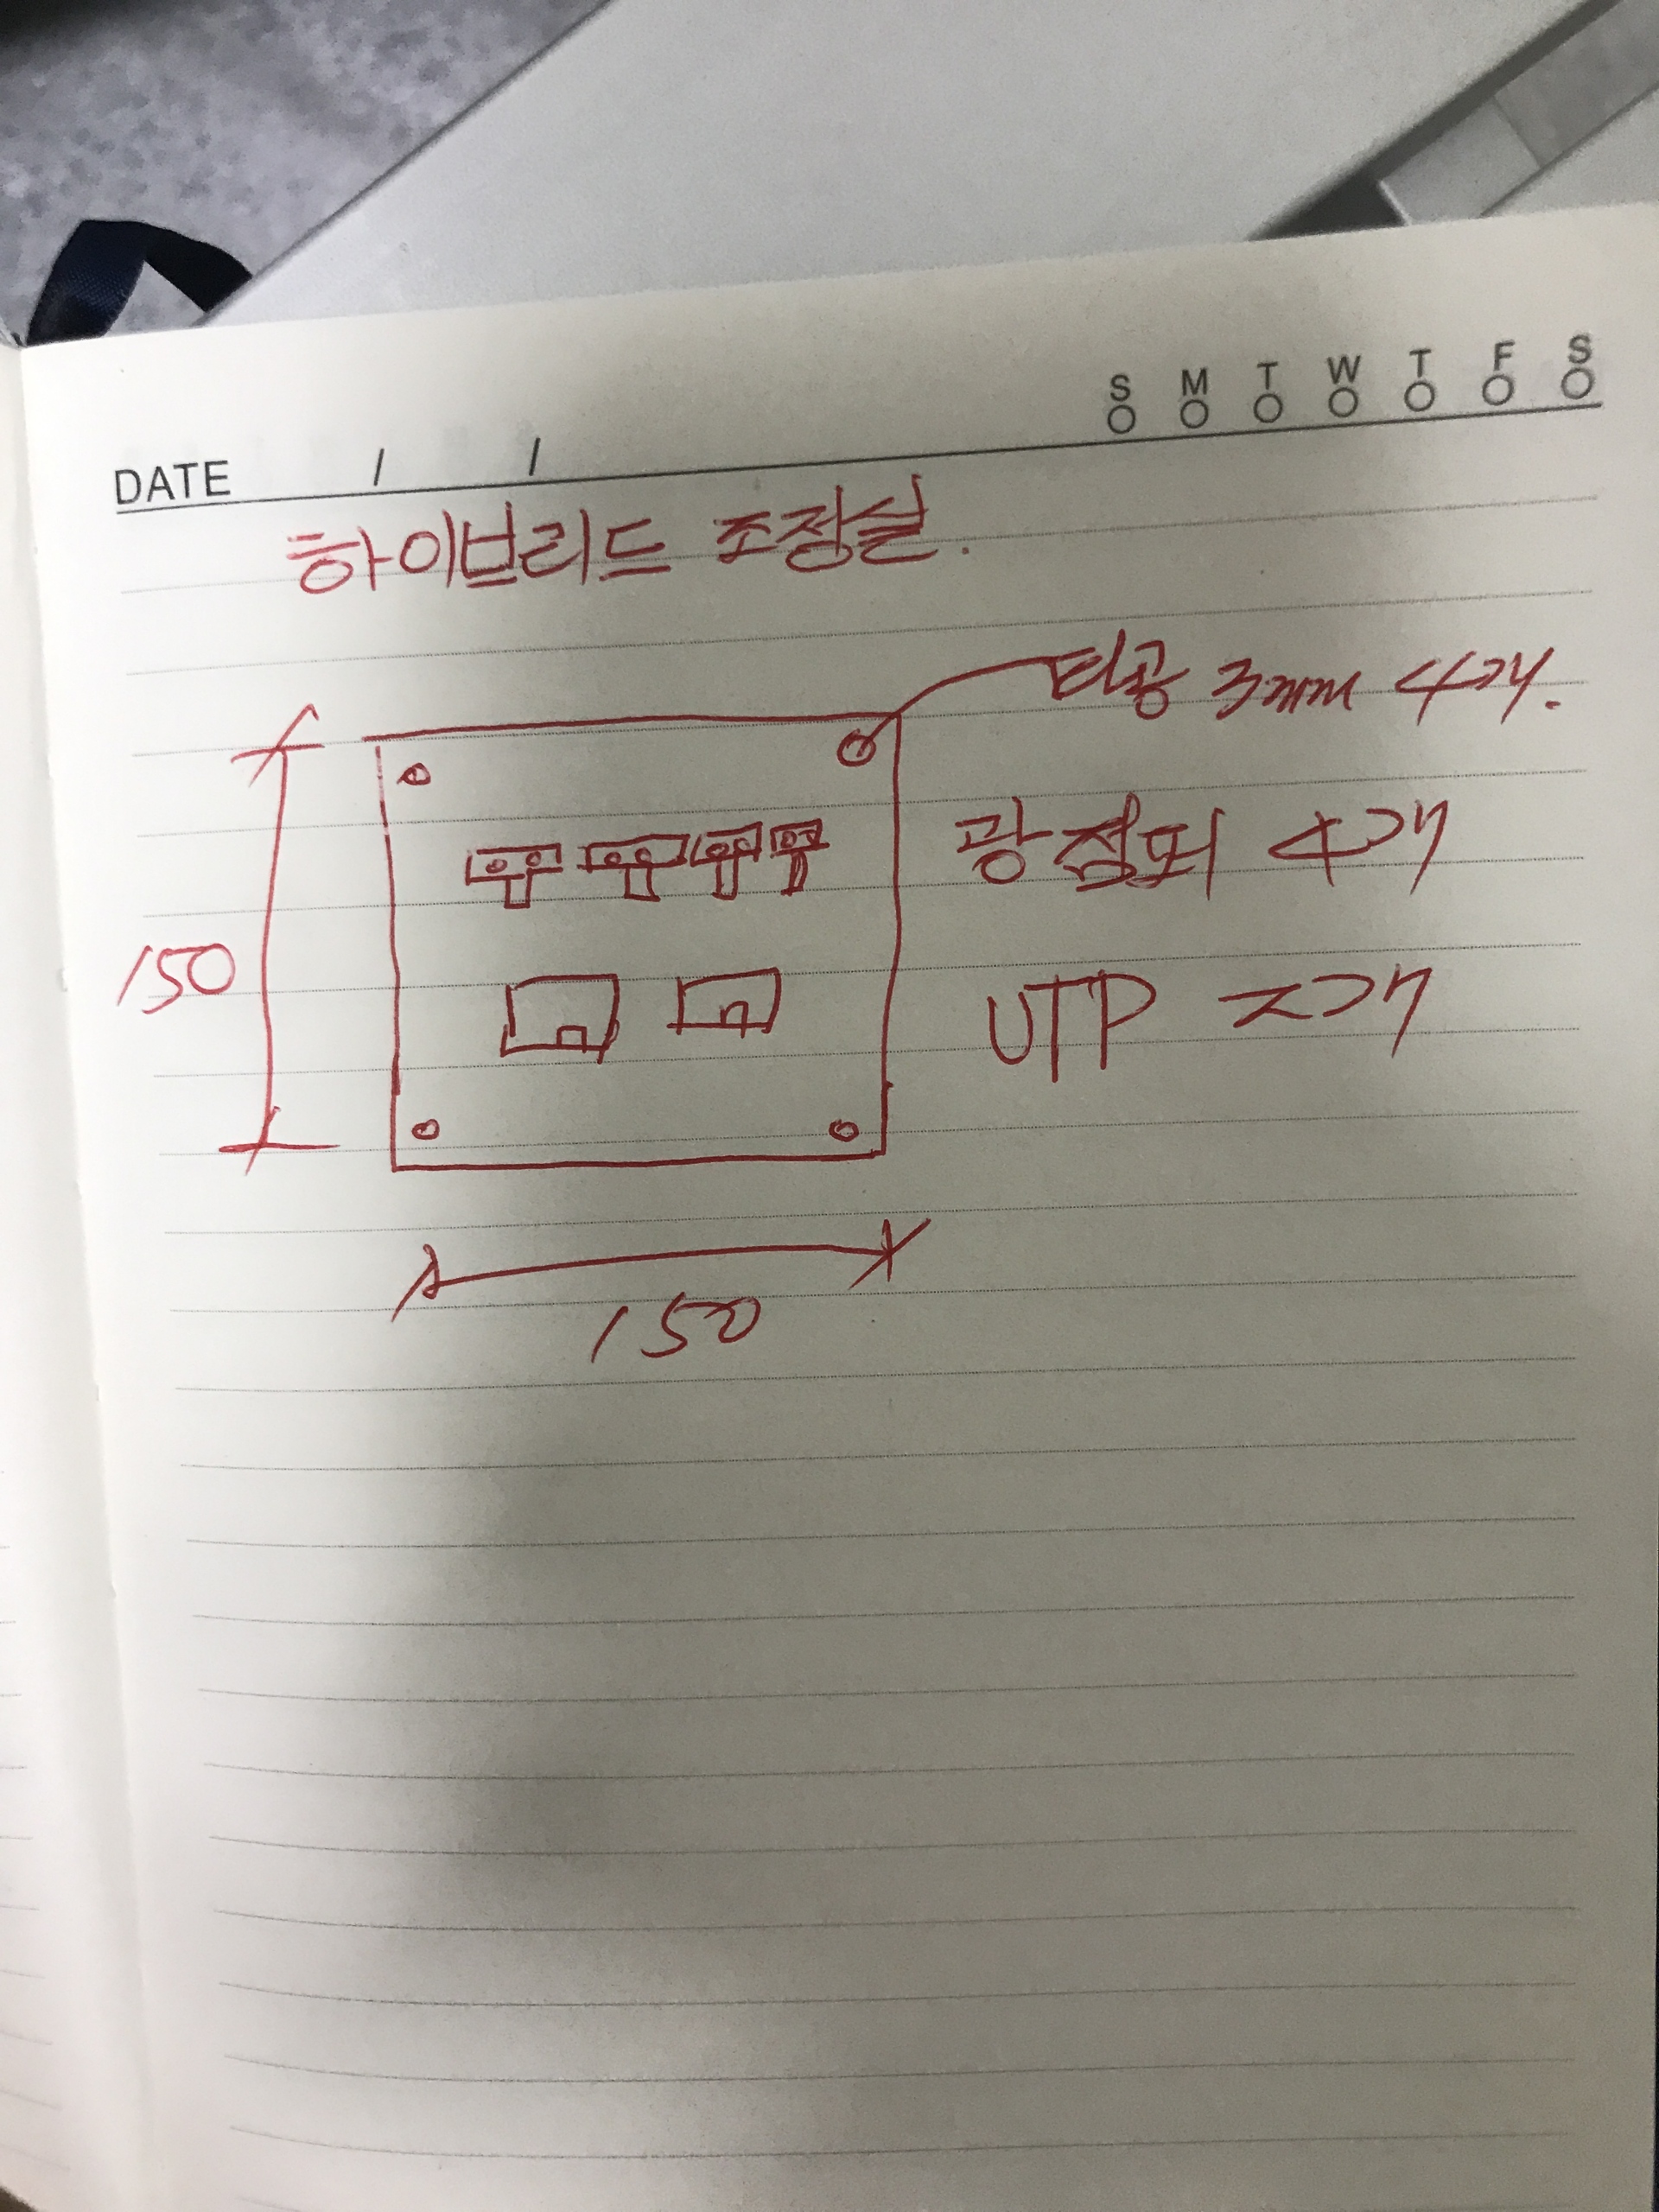 S M T W T F S
DATE / /
하이브리드 조정실.
타공 3mm 4개.
광 점퍼 4개
150
UTP 2개
150